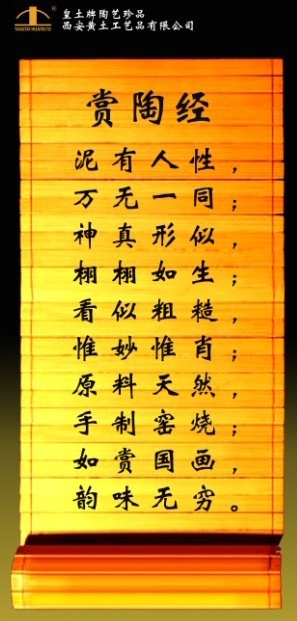 皇土牌陶艺珍品
西安黄土工艺品有限公司
赏陶经
泥有人性，
万无一同；
神真形似，
栩栩如生；
看似粗糙，
惟妙惟肖；
原料天然，
手制窑烧；
如赏国画，
韵味无穷。